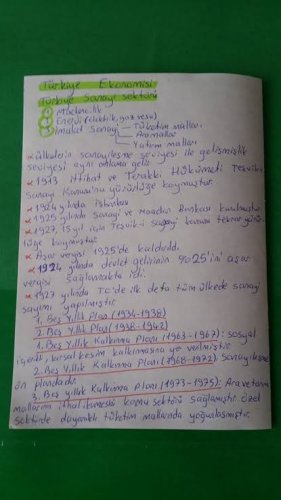 Türkiye Ekonomisi
Türkiye Sanayi Sektörü
1 Madencilik
2 Enerji (elektrik, gaz ve su)
3 İmalat Sanayi → Tüketim malları
Ara mallar
Yatırım malları
* Ülkelerin sanayileşme seviyesi ile gelişmişlik
seviyesi aynı anlama gelir
* 1913 İttihat ve Terakki Hükümeti Teşvik-i
Sanayi Kanunu'nu yürürlüğe koymuştur.
* 1924 yılında İş bankası
* 1925 yılında Sanayi ve Maadin Bankası kurulmuştur
* 1927, 15 yıl için Teşvik-i sanayi kanunu tekrar yürür-
lüğe koymuştur
* Aşar vergisi 1925'de kaldırıldı.
* 1924 yılında devlet gelirinin %25'ini aşar
vergisi sağlamakta idi.
* 1927 yılında TC'de ilk defa tüm ülkede sanayi
sayımı yapılmıştır
1. Beş Yıllık Plan (1934-1938)
2. Beş Yıllık Plan (1938-1942)
1. Beş Yıllık Kalkınma Planı (1963-1967): sosyal
içerikli, kırsal kesim kalkınmasına yer verilmiştir
2. Beş Yıllık Kalkınma Planı (1968-1972): Sanayileşme
ön plandadır.
3. Beş yıllık Kalkınma Planı (1973-1975): Ara ve tarım
mallarını ithal ikamesini kamu sektörü sağlamıştır. özel
sektörde dayanıklı tüketim mallarında yoğunlaşmıştır.